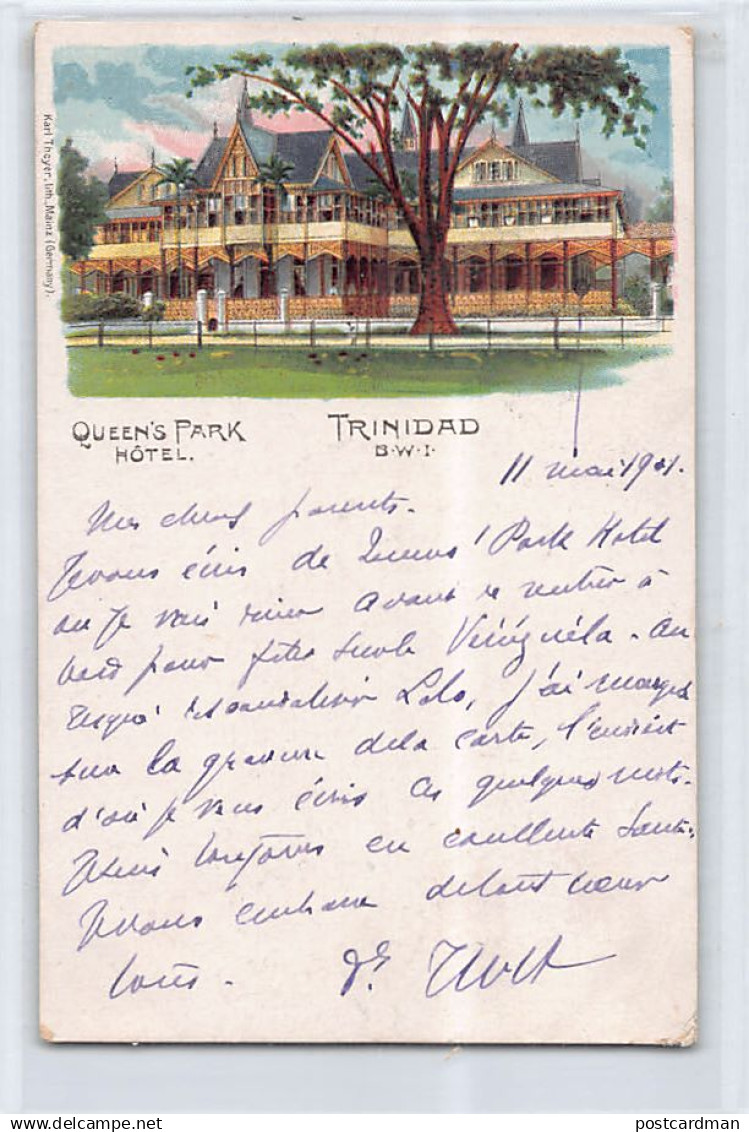 Karl Theyer, lith., Mainz (Germany).
QUEEN'S PARK
HÔTEL.
TRINIDAD
B·W·I·
11 mai 1901.
Mes chers parents.
Je vous écris de Queens' Park Hotel
ou je vais diner avant de rentrer à
bord pour filer sur le Vénézuéla. au
j'ai marqué
sur la gravure de la carte, l'endroit
d'où je vous écris ces quelques mots.
toujours en excellente santé.
Je vous embrasse de tout coeur
tous.
postcardman